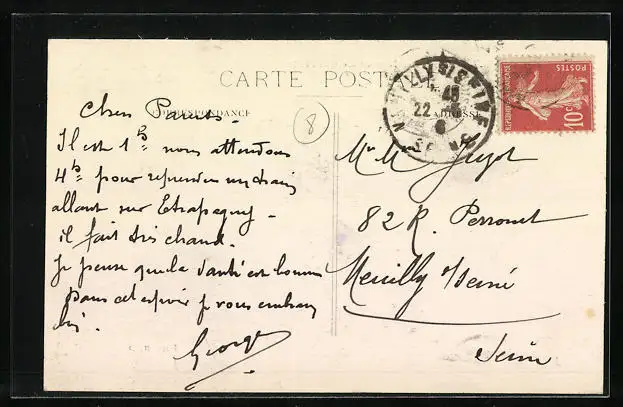 CARTE POSTALE
CORRESPONDANCE
ADRESSE
8
Chers Parents -
Il est 1h nous attendons
4h pour reprendre un train
allant sur Etrepagny -
il fait très chaud.
Je pense que la santé est bonne
dans cet espoir je vous embrasse
Georges
REPUBLIQUE FRANÇAISE
POSTES
10c
NEUILLY-S-SEINE
22
SEINE
Mr Mme
82 R. Perronet
Neuilly s/Seine
Seine